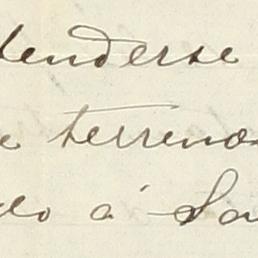 tenderse
e terrenos
do á Sa